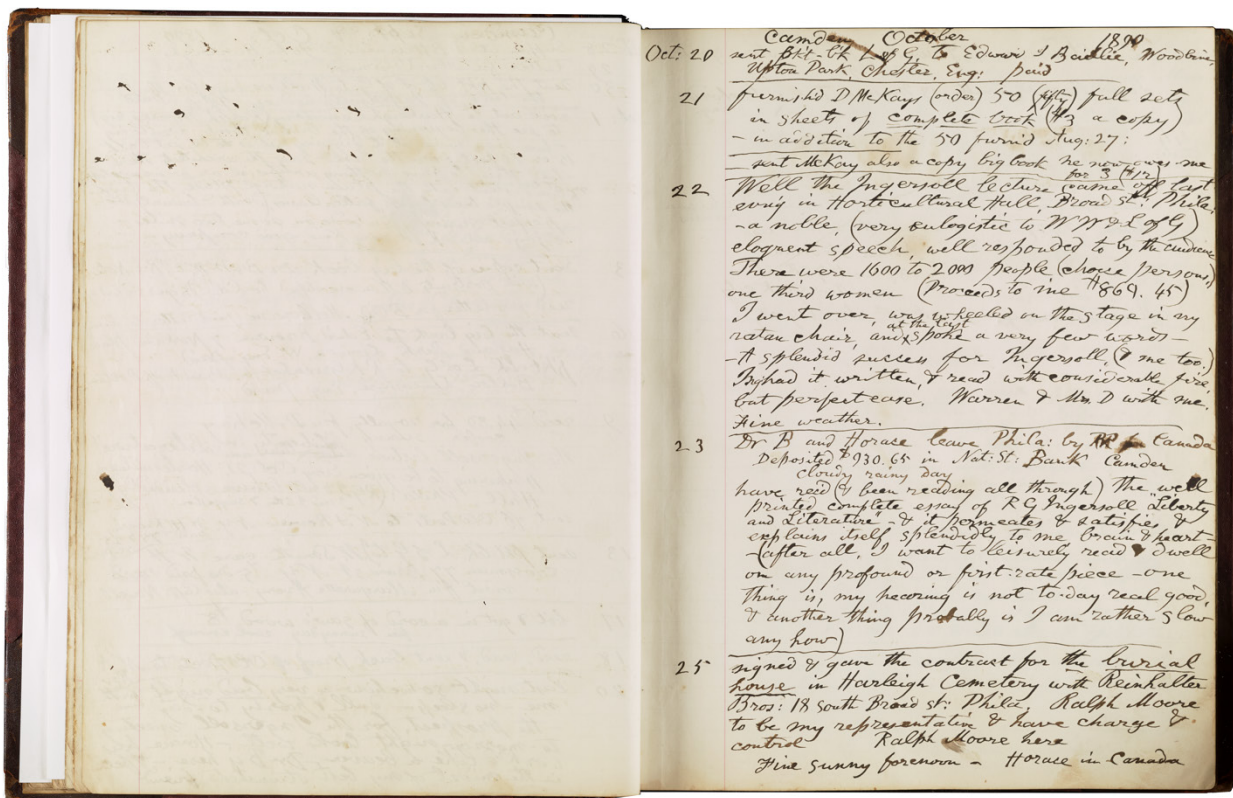 Camden October 1890
Oct: 20 sent Bk't-b'k L of G. to Edward J Baillie, Woodbine,
Upton Park, Chester, Eng: paid
21 furnish'd D McKay's (order) 50 (fifty) full sets
in sheets of complete book ($3 a copy)
- in addition to the 50 furn'd Aug: 27:
sent McKay also a copy big book he now owes me
for 3 ($12)
22 Well the Ingersoll lecture came off last
evn'g in Horticultural Hall, Broad st: Phila:
- a noble, (very eulogistic to W W & L of G)
eloquent speech, well responded to by the audience
There were 1600 to 2000 people (choice persons,)
one third women (Proceeds to me $869.45)
I went over, was wheeled on the stage in my
ratan chair, and at the last spoke a very few words -
- A splendid success for Ingersoll, (& me too.)
Ing: had it written, & read with considerable fire,
but perfect ease. Warren & Mrs. D with me.
Fine weather.
23 Dr B and Horace leave Phila: by RR for Canada
Deposited $930.65 in Nat: St: Bank Camden
cloudy rainy day
have rec'd (& been reading all through) the well
printed complete essay of R G Ingersoll "Liberty
and Literature" - & it permeates & satisfies &
explains itself splendidly to me brain & heart -
- (after all, I want to leisurely read & dwell
on any profound or first-rate piece - one
thing is, my hearing is not to-day real good,
& another thing probably is I am rather slow
any how)
25 signed & gave the contract for the burial
house in Harleigh Cemetery with Reinhalter
Bros: 18 South Broad st: Phila, Ralph Moore
to be my representative & have charge &
control Ralph Moore here
Fine sunny forenoon - Horace in Canada